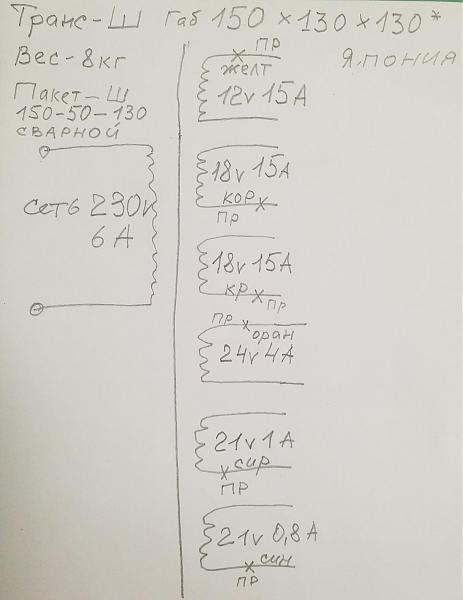 Транс-Ш Габ 150×130×130*
Вес-8кг
Япония
Пакет-Ш
150-50-130
СВАРНОЙ
сеть 230v
6А
ПР
желт
12v 15А
18v 15А
кор
ПР
18v 15А
кр
ПР
ПР
оран
24v 4А
21v 1А
сир
ПР
21v 0,8А
син
ПР